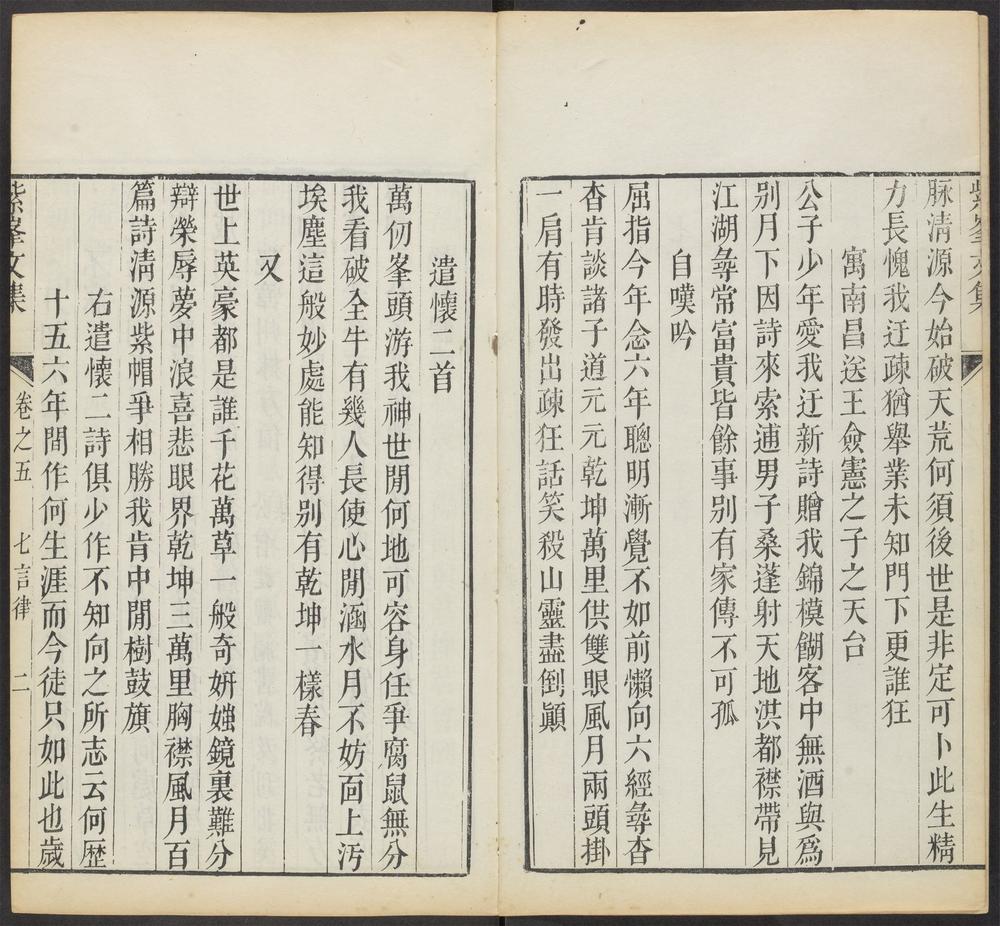 紫峯文集
脉清源今始破天荒何須後世是非定可卜此生精
力長愧我迂疎猶舉業未知門下更誰狂
寓南昌送王僉憲之子之天台
公子少年愛我迂新詩贈我錦模餬客中無酒與爲
别月下因詩來索逋男子桑蓬射天地洪都襟帶見
江湖彞常富貴皆餘事别有家傳不可孤
自嘆吟
屈指今年念六年聰明漸覺不如前懶向六經彞杳
杳肯談諸子道元元乾坤萬里供雙眼風月兩頭掛
一肩有時發出疎狂話笑殺山靈盡倒顚
遣懷二首
萬仞峯頭游我神世閒何地可容身任爭腐鼠無分
我看破全牛有幾人長使心閒涵水月不妨面上汚
埃塵這般妙處能知得别有乾坤一樣春
又
世上英豪都是誰千花萬草一般奇妍媸鏡裏難分
辯榮辱夢中浪喜悲眼界乾坤三萬里胸襟風月百
篇詩清源紫帽爭相勝我肯中閒樹鼓旗
右遣懷二詩俱少作不知向之所志云何歷
十五六年間作何生涯而今徒只如此也歲
紫峯文集 卷之五 七言律 二